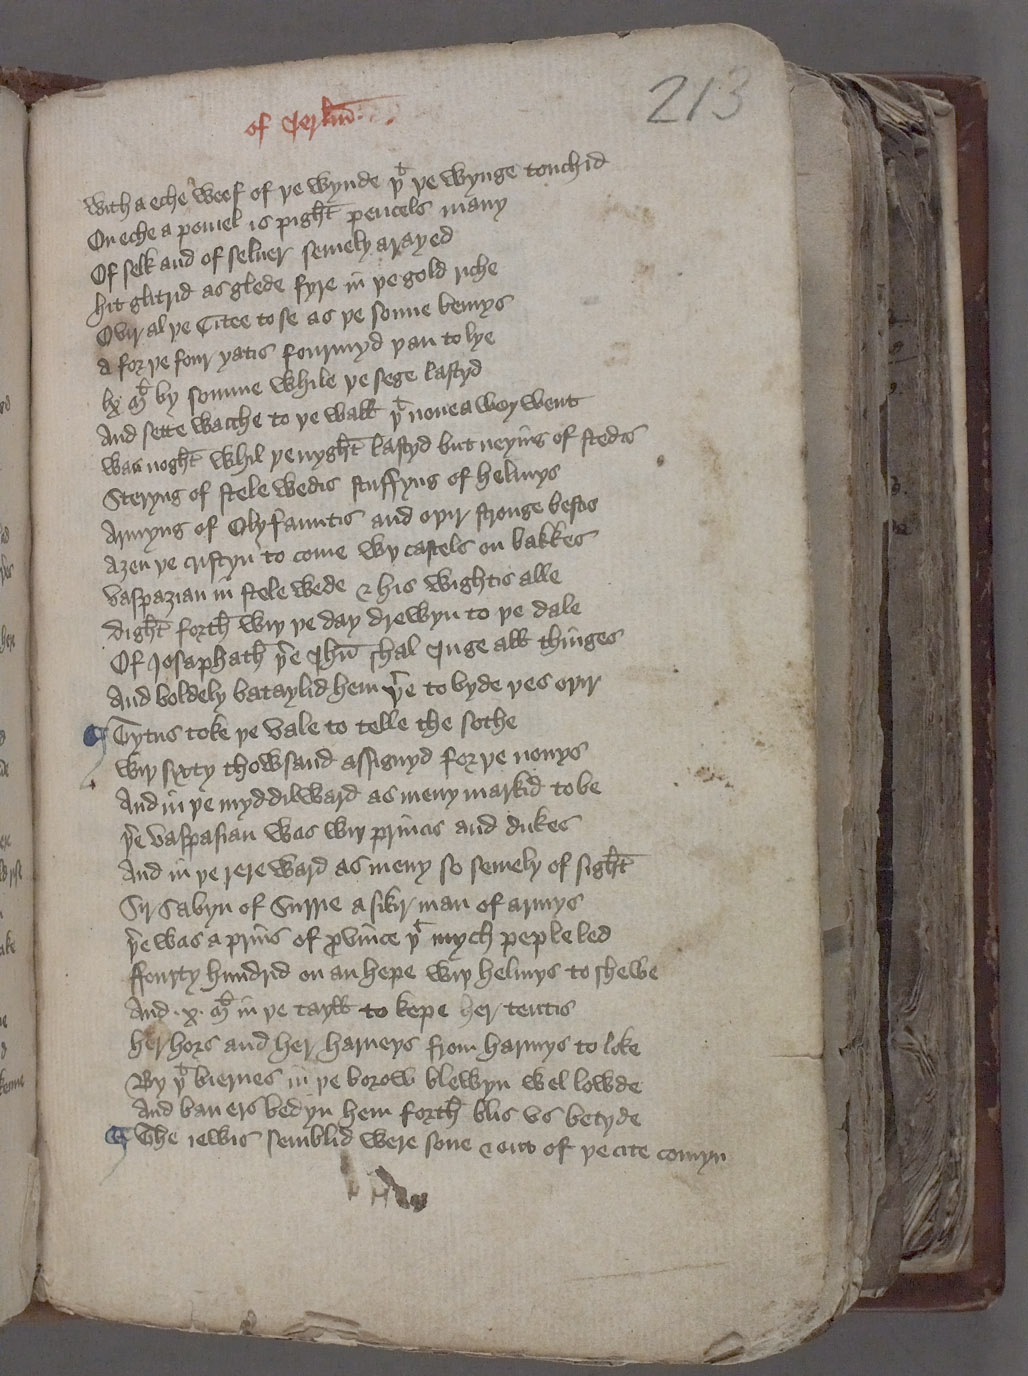 of Jerlm̄
213
With a eche weef of þe wynde þt þe wynge touchid
On eche a pomel is pight pencels many
Of selk and of seluer semely arayed
hit glitrid as glede fyre in þe gold riche
Ovir al þe Citee to se as þe sonne bemys
A for þe four yatis fourmyd þan to lye
lx Ml by somme while þe sege lastyd
And sette wacche to þe wall þt none awey went
Was noght whil þe nyght lastyd but neyȝing of stedis
Steryng of stele wedis stuffyng of helmys
Armyng of Olyfauntis and oþir stronge bestis
Aȝen þe cristyn to come wþ castels on bakkes
Vaspaȝian in stele wede & his wightis alle
dight forth wiþ þe day drewyn to þe dale
Of Josaphath þre Jhu shal Juge all thinges
And boldely bataylid hem þre to byde þes oþir
¶ Tytus toke þe vale to telle the sothe
Wiþ sixty thowsand assignyd for þe nonys
And in þe myddilward as meny markid to be
þre Vaspasian was wiþ princis and dukes
And in þe rereward as meny so semely of sight
Sir Sabyn of Surrie a sikir man of armys
þre was a prins of province þt mych peple led
ffourty hundrid on an hepe wiþ helmys to shewe
And .x. Ml in þe tayll to kepe her tentis
her hors and her harneys from harmys to loke
By þt biernes in þe borow blewyn wel lowde
And baners bedyn hem forth blis vs betyde
¶ The iewis semblid were sone & out of þe cite comyn